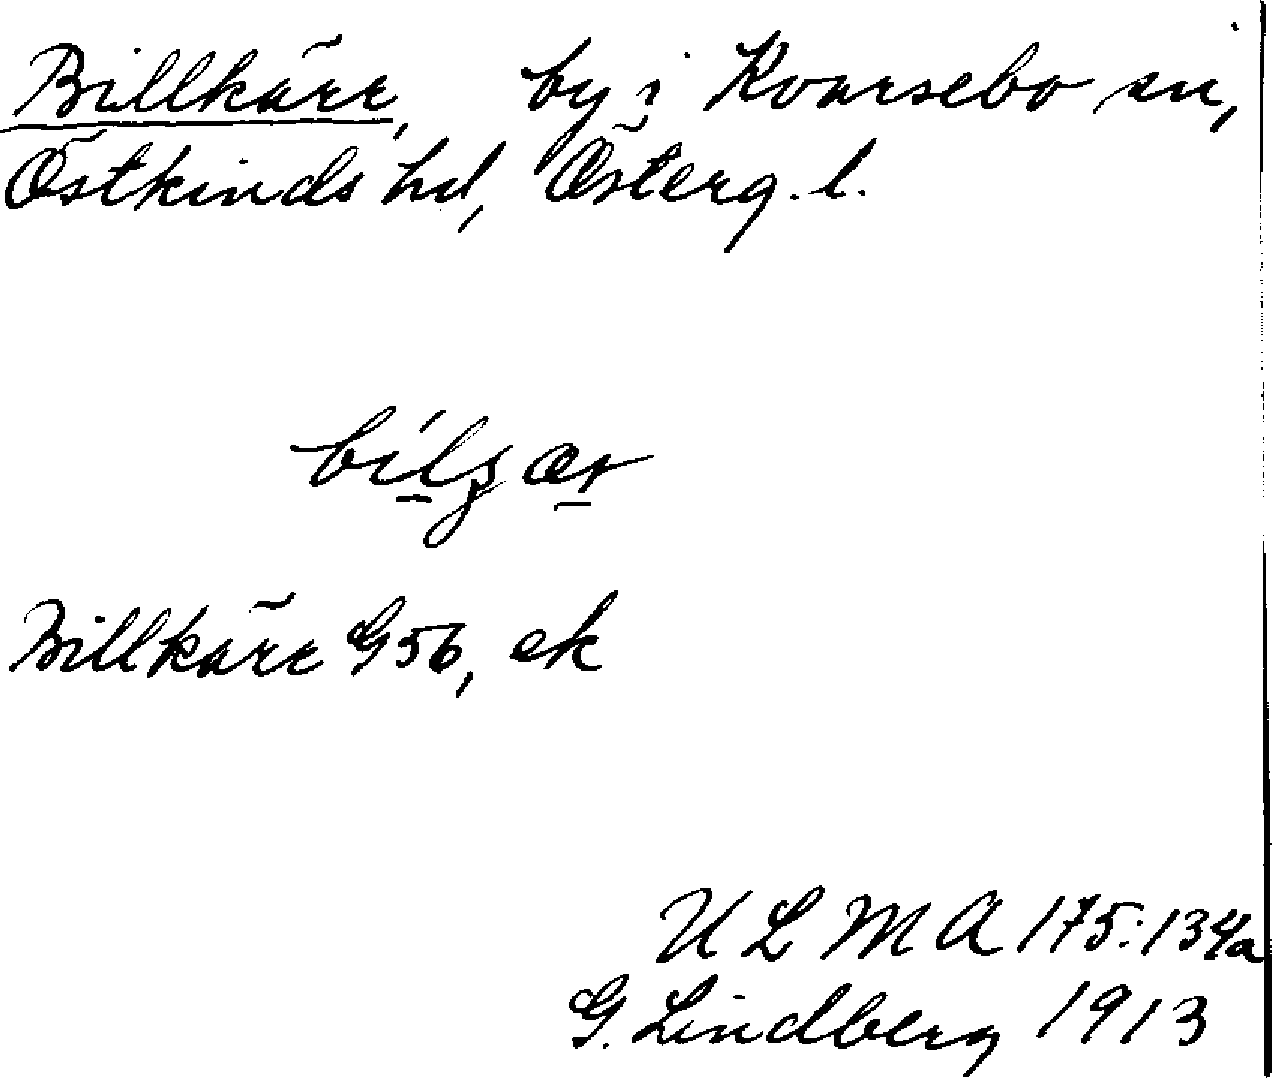 Billkärr, by i Kvarsebo sn,
Östkinds hd, Österg. l.
Billkärr G56, ek
ULMA 175:134a
G. Lindberg 1913